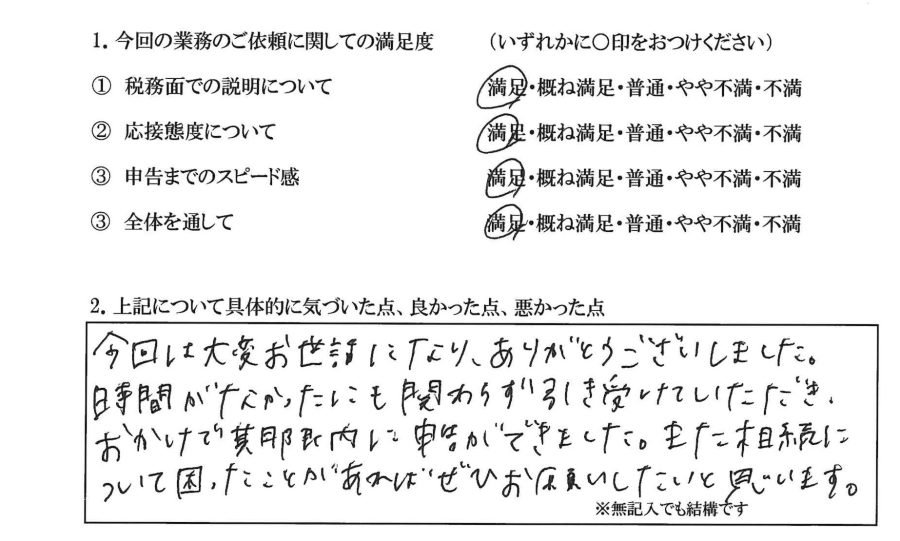 1. 今回の業務のご依頼に関しての満足度 (いずれかに○印をおつけください)
① 税務面での説明について 満足・概ね満足・普通・やや不満・不満
② 応接態度について 満足・概ね満足・普通・やや不満・不満
③ 申告までのスピード感 満足・概ね満足・普通・やや不満・不満
③ 全体を通して 満足・概ね満足・普通・やや不満・不満
2. 上記について具体的に気づいた点、良かった点、悪かった点
今回は大変お世話になり、ありがとうございました。
時間がなかったにも関わらず引き受けていただき、
おかげで期限内に申告ができました。また相続に
ついて困ったことがあればぜひお願いしたいと思います。
※無記入でも結構です